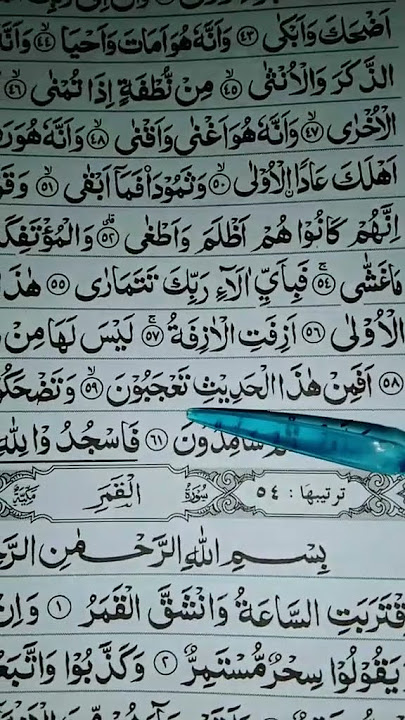 اَضْحَكَ وَاَبْكٰى ۝٤٣ وَاَنَّهٗ هُوَ اَمَاتَ وَاَحْيَا ۝٤٤ وَاَنَّهٗ
الذَّكَرَ وَالْاُنْثٰى ۝٤٥ مِنْ نُّطْفَةٍ اِذَا تُمْنٰى ۝٤٦
الْاُخْرٰى ۝٤٧ وَاَنَّهٗ هُوَ اَغْنٰى وَاَقْنٰى ۝٤٨ وَاَنَّهٗ هُوَ
اَهْلَكَ عَادًا اۨلْاُوْلٰى ۝٥٠ وَثَمُوْدَا۟ فَمَآ اَبْقٰى ۝٥١
اِنَّهُمْ كَانُوْا هُمْ اَظْلَمَ وَاَطْغٰى ۝٥٢
مَا غَشّٰى ۝٥٤ فَبِاَيِّ اٰلَآءِ رَبِّكَ تَتَمَارٰى ۝٥٥ هٰذَا
الْاُوْلٰى ۝٥٦ اَزِفَتِ الْاٰزِفَةُ ۝٥٧ لَيْسَ لَهَا مِنْ
۝٥٨ اَفَمِنْ هٰذَا الْحَدِيْثِ تَعْجَبُوْنَ ۝٥٩
سَامِدُوْنَ ۝٦١ فَاسْجُدُوْا لِلّٰهِ
ترتيبها : ٥٤ سُوْرَةُ الْقَمَرِ مَكِّيَّةٌ
بِسْمِ اللّٰهِ الرَّحْمٰنِ
السَّاعَةُ وَانْشَقَّ الْقَمَرُ ۝١ وَاِنْ
يَقُوْلُوْا سِحْرٌ مُّسْتَمِرٌّ ۝٢ وَكَذَّبُوْا